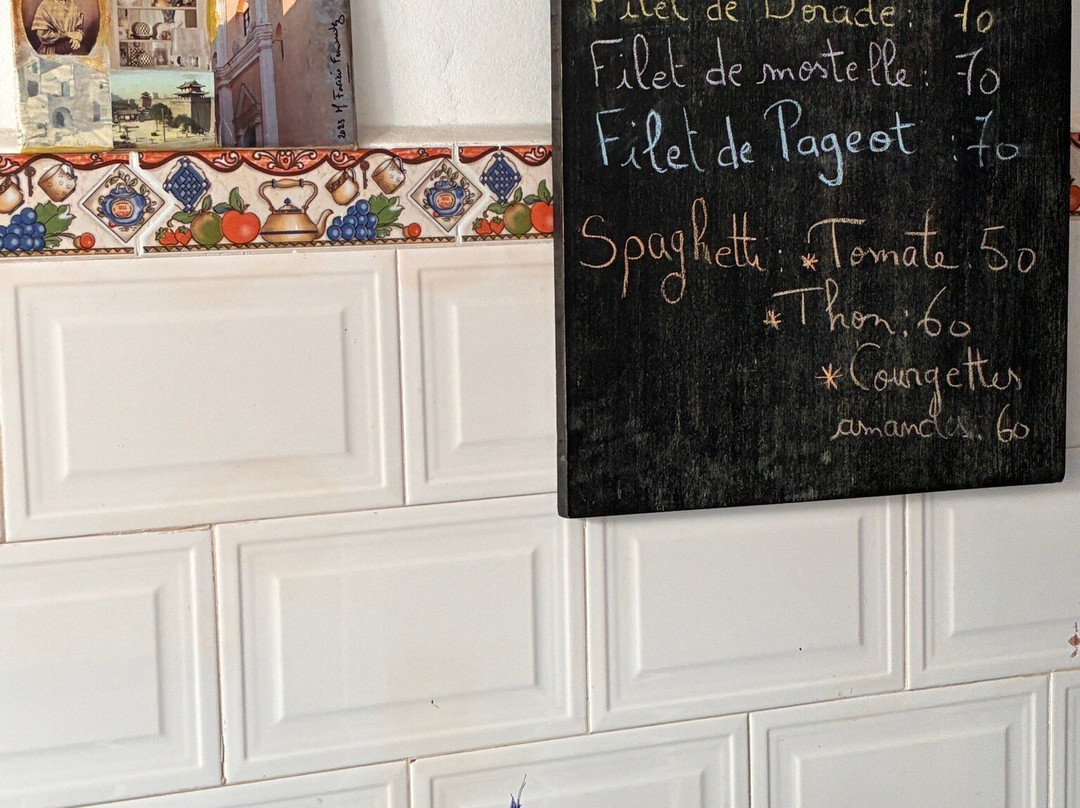 Filet de Dorade: 70
Filet de mostelle: 70
Filet de Pageot : 70
Spaghetti: *Tomate: 50
*Thon: 60
*Courgettes
amandes: 60
2023